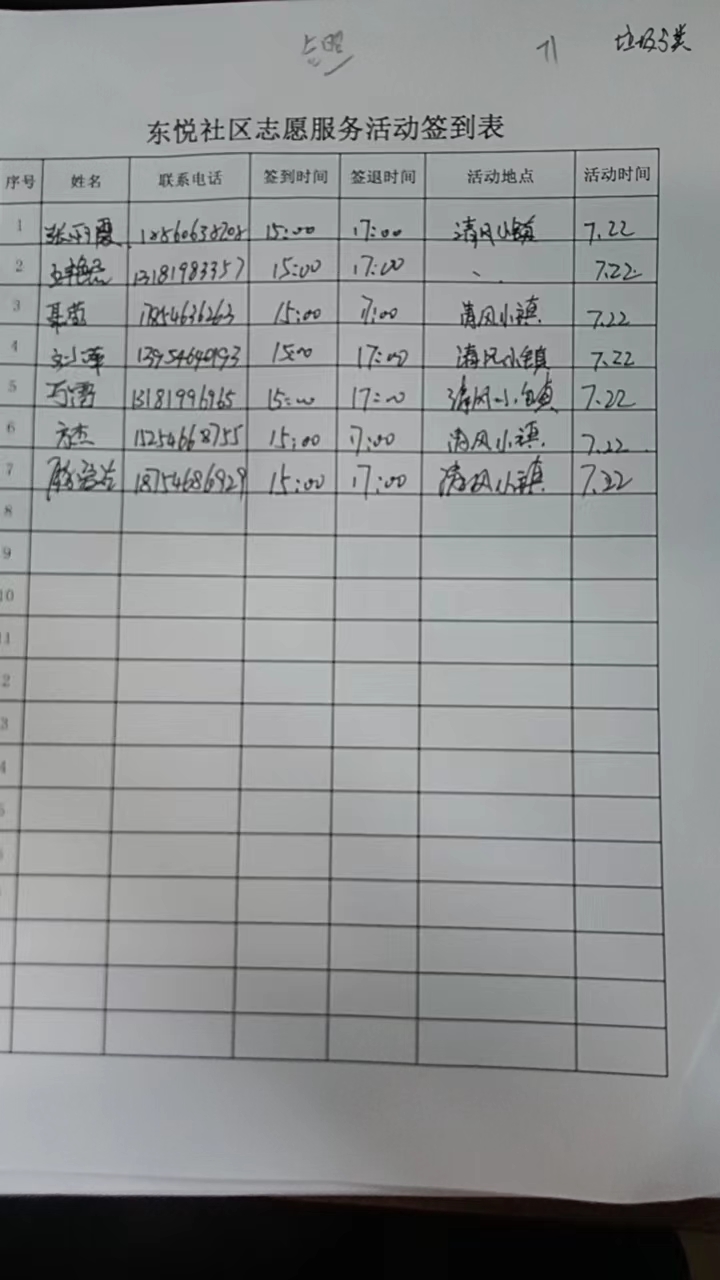 垃圾分类
东悦社区志愿服务活动签到表
序号 姓名 联系电话 签到时间 签退时间 活动地点 活动时间
1 15:00 17:00 清风小镇 7.22
2 13181983357 15:00 17:00 7.22
3 17854636263 15:00 17:00 清风小镇 7.22
4 15:00 17:00 清风小镇 7.22
5 13181996965 15:00 17:00 清风小镇 7.22
6 方杰 15254668755 15:00 17:00 清风小镇 7.22
7 18754686929 15:00 17:00 清风小镇 7.22
8
9
10